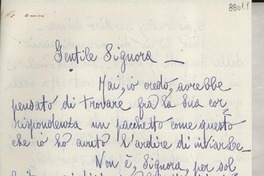 88011
Gentile Signora —
Mai, io credo, avrebbe
pensato di trovare fra la sua cor_
rispondenza un pacchetto come questo
che io ho avuto l'ardire di inviarle.
Non è, Signora, per sol